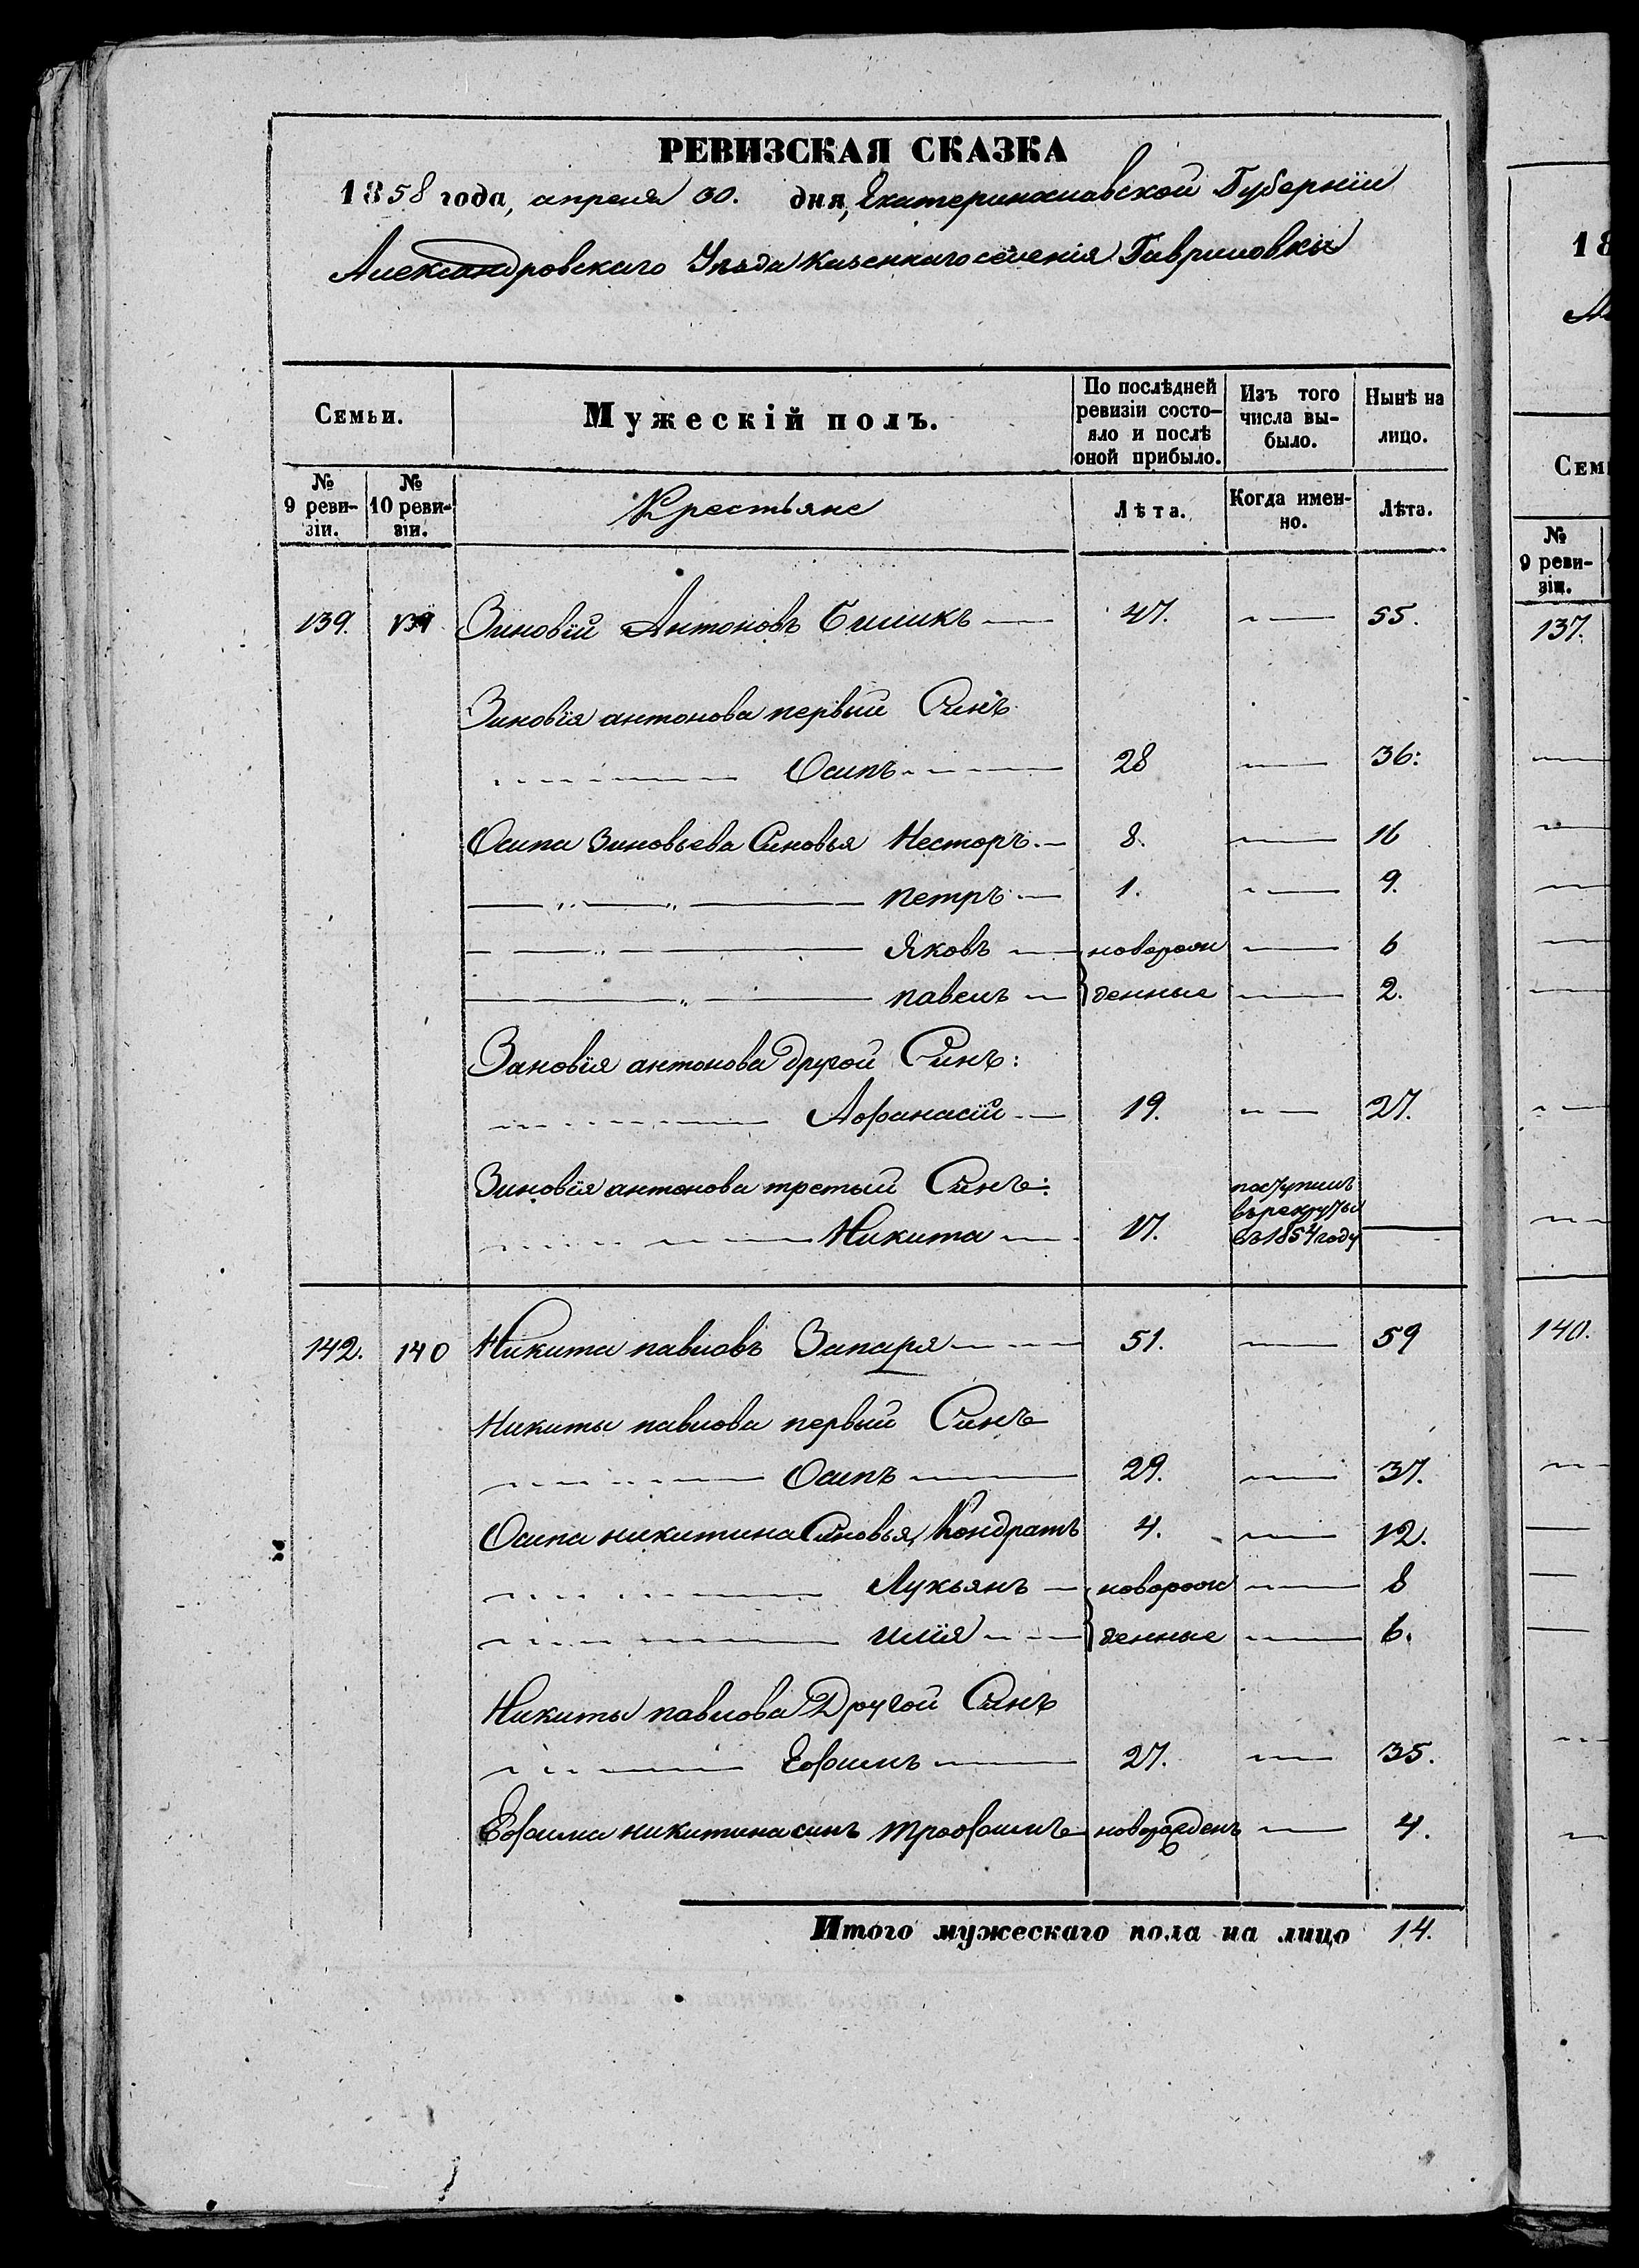 РЕВИЗСКАЯ СКАЗКА
1858 года, апреля 30. дня, Екатеринославской Губернїи
Александровскаго Уѣзда казеннаго селенія Гавриловки
Семьи.
Мужескій полъ.
По послѣдней ревизіи состояло и послѣ оной прибыло.
Изъ того числа выбыло.
Нынѣ на лицо.
№ 9 ревизіи.
№ 10 ревизіи.
Крестьяне
Лѣта.
Когда именно.
Лѣта.
139. 139 Зиновїй Антоновъ Биликъ 47. 55.
Зиновїя антонова первый Сынъ
Осипъ 28 36.
Осипа Зиновьева Сыновья Несторъ 8. 16
петръ 1. 9.
Яковъ новорож 6
павелъ денные 2.
Зиновїя антонова другой Сынъ:
Афанасїй 19. 27.
Зиновїя антонова третый Сынъ:
Никита 17.
поступилъ
въ рекруты
въ 1854 году
142. 140 Никита павловъ Запаря 51. 59
Никиты павлова первый Сынъ
Осипъ 29. 37.
Осипа никитина Сыновья, Кондратъ 4. 12.
Лукьянъ новорож 8
илїя денные 6.
Никиты павлова Другой Сынъ
Ефимъ 27. 35.
Ефима никитина сынъ трофимъ новорожденъ 4.
Итого мужескаго пола на лицо 14.
18
Сем
№
9 реви-
зіи.
137.
140.